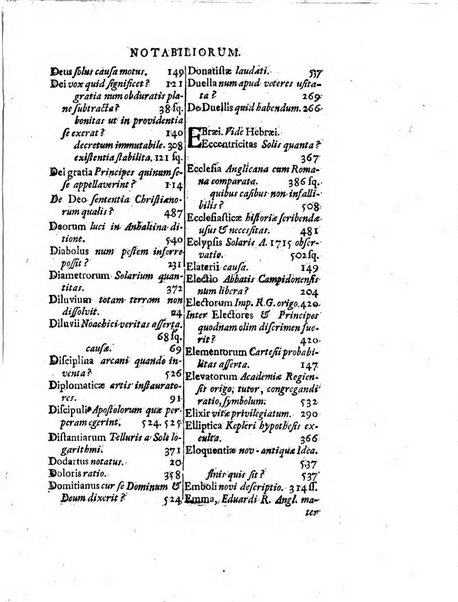 NOTABILIORUM.
Deus solus causa motus. 149
Dei vox quid significet? 121
gratia num obduratis pla-
ne subtracta? 38 sq.
bonitas ut in providentia
se exerat? 140
decretum immutabile. 308
existentia stabilita. 121 sq.
Dei gratia Principes quinum se-
se appellaverint? 114
De Deo sententia Christiano-
rum qualis? 487
Deorum luci in Anhaltina di-
tione. 540
Diabolus num pestem inferre
possit? 231
Diametrorum Solarium quan-
titas. 372
Diluvium totam terram non
dissolvit. 24
Diluvii Noachici veritas asserta.
68 sq.
causa. 69
Disciplina arcani quando in-
venta? 526
Diplomaticæ artis instaurato-
res. 91
Discipuli Apostolorum quæ per-
peram egerint. 524. 525
Distantiarum Telluris a Sole lo-
garithmi. 371
Dodartus notatus. 20
Doloris ratio. 358
Domitianus cur se Dominum &
Deum dixerit? 524
Donatistæ laudati. 537
Duella num apud veteres usita-
ta? 269
De Duellis quid habendum. 266
EBræi. Vide Hebræi.
Eccentricitas Solis quanta?
367
Ecclesia Anglicana cum Roma-
na comparata. 386 sq.
quibus casibus non infalli-
bilis? 508
Ecclesiasticæ historiæ scribendæ
usus & necessitas. 481
Eclypsis Solaris A. 1715 obser-
vatio. 502 sq.
Elaterii causa. 149
Electio Abbatis Campidonensis
num libera? 204
Electorum Imp. R. G. origo. 420
Inter Electores & Principes
quodnam olim discrimen fue-
rit? 420
Elementorum Cartesii probabi-
litas asserta. 147
Elevatorum Academiæ Regien-
sis origo, tutor, congregandi
ratio, symbolum. 532
Elixir vitæ privilegiatum. 290
Elliptica Kepleri hypothesis ex-
culta. 366
Eloquentiæ nov-antiquæ Idea.
537
finis quis sit? 537
Emboli novi descriptio. 314 sq.
Emma, Eduardi R. Angl. ma-
ter